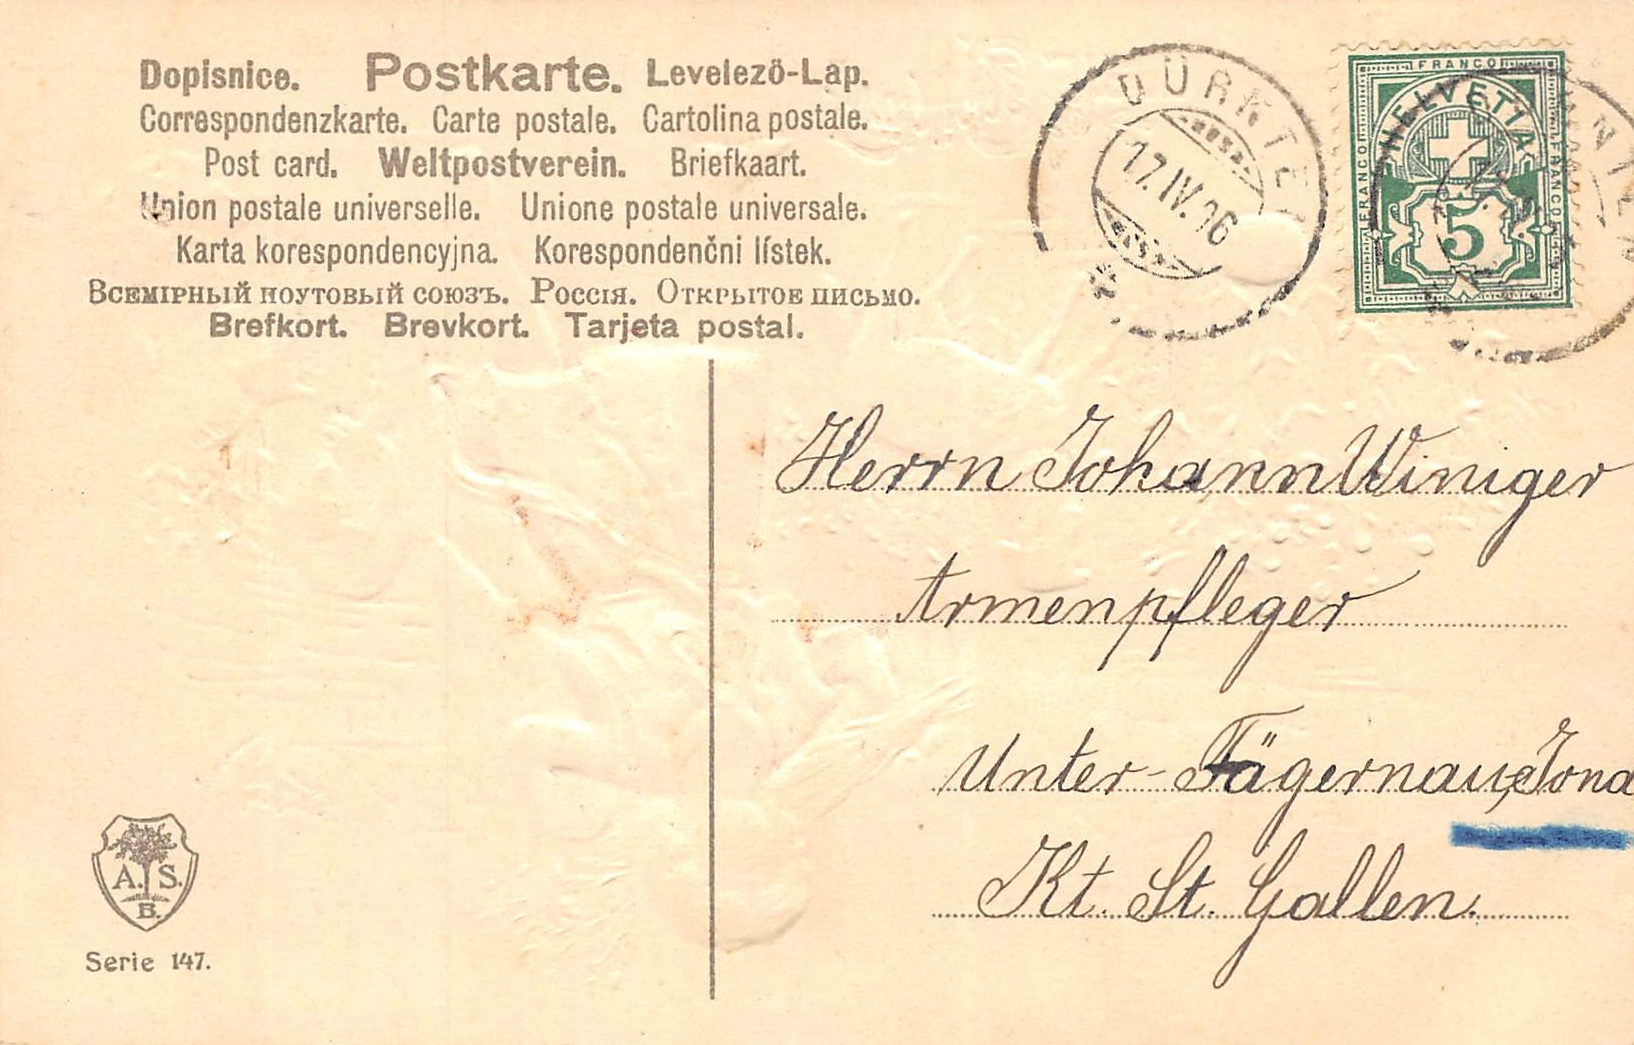 Dopisnice. Postkarte. Levelező-Lap.
Correspondenzkarte. Carte postale. Cartolina postale.
Post card. Weltpostverein. Briefkaart.
Union postale universelle. Unione postale universale.
Karta korespondencyjna. Korespondenčni lístek.
Всемірный поутовый союзъ. Россія. Открытое письмо.
Brefkort. Brevkort. Tarjeta postal.
17.IV.16
FRANCO
HELVETIA
FRANCO
FRANCO
5
Herrn Johann Winiger
Armenpfleger
Unter-Tägernau, Jona
Kt. St. Gallen.
A. S.
B.
Serie 147.